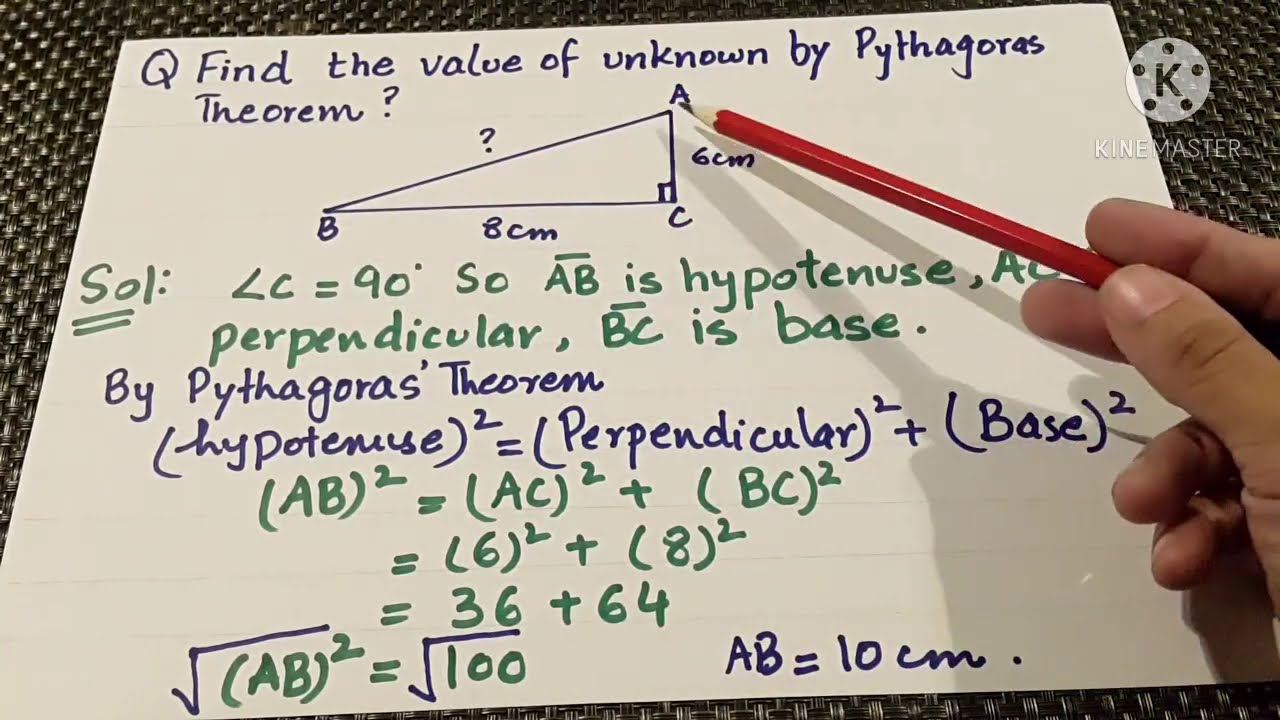 Q Find the value of unknown by Pythagoras
Theorem ?
A
?
6cm
B
8cm
C
Sol: ∠C = 90° So AB is hypotenuse, AC
perpendicular, BC is base.
By Pythagoras' Theorem
(hypotenuse)² = (Perpendicular)² + (Base)²
(AB)² = (AC)² + (BC)²
= (6)² + (8)²
= 36 + 64
√(AB)² = √100
AB = 10 cm .
K
KINEMASTER